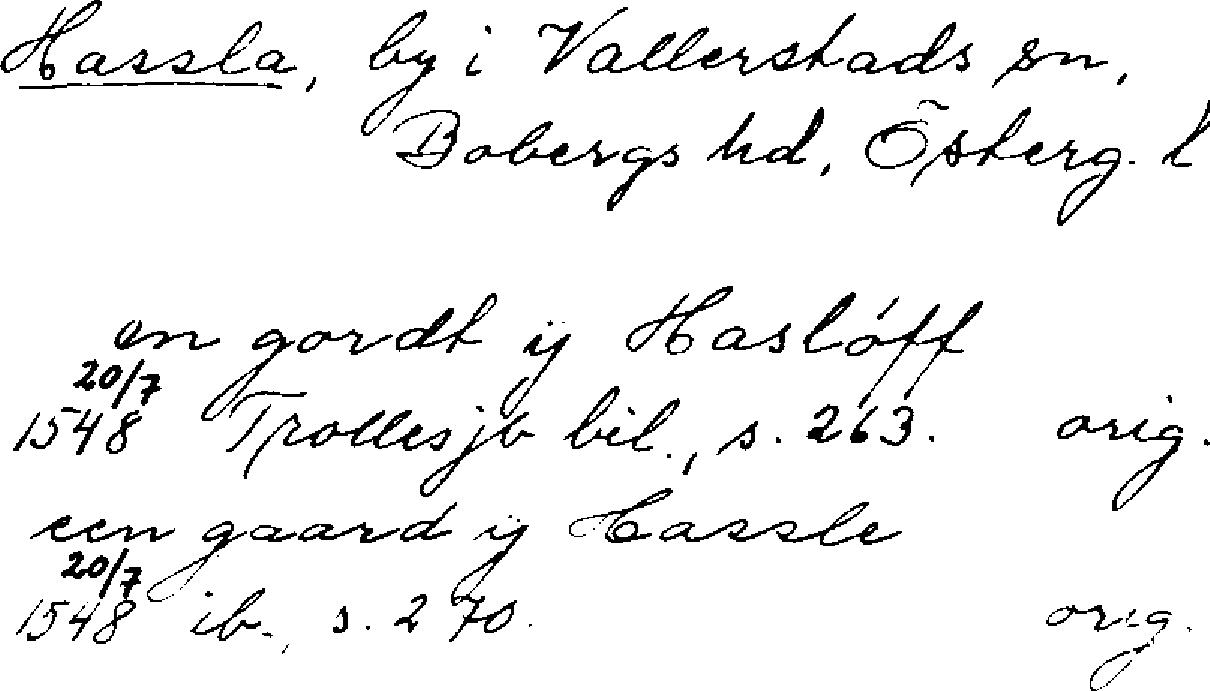 Hassla, by i Vallerstads sn,
Bobergs hd, Österg. l
en gordt ij Haslóff
20/7
1548 Trolles jb bil., s. 263. orig.
een gaard ij Hassle
20/7
1548 ib., s. 270. orig.